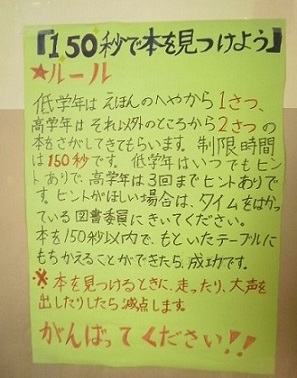 『150秒で本を見つけよう』
★ルール
低学年は えほんのへやから 1さつ、
高学年は それ以外のところから 2さつ の
本をさがしてきてもらいます。 制限時間
は 150秒 です。 低学年はいつでもヒン
トありで、高学年は3回までヒントありで
す。ヒントがほしい場合は、タイムをはかっ
ている 図書委員 にきいてください。
本を150秒以内で、もといたテーブルに
もちかえることができたら、成功です。
※ 本を見つけるときに、走ったり、大声を
出したりしたら 減点します。
がんばって ください!!